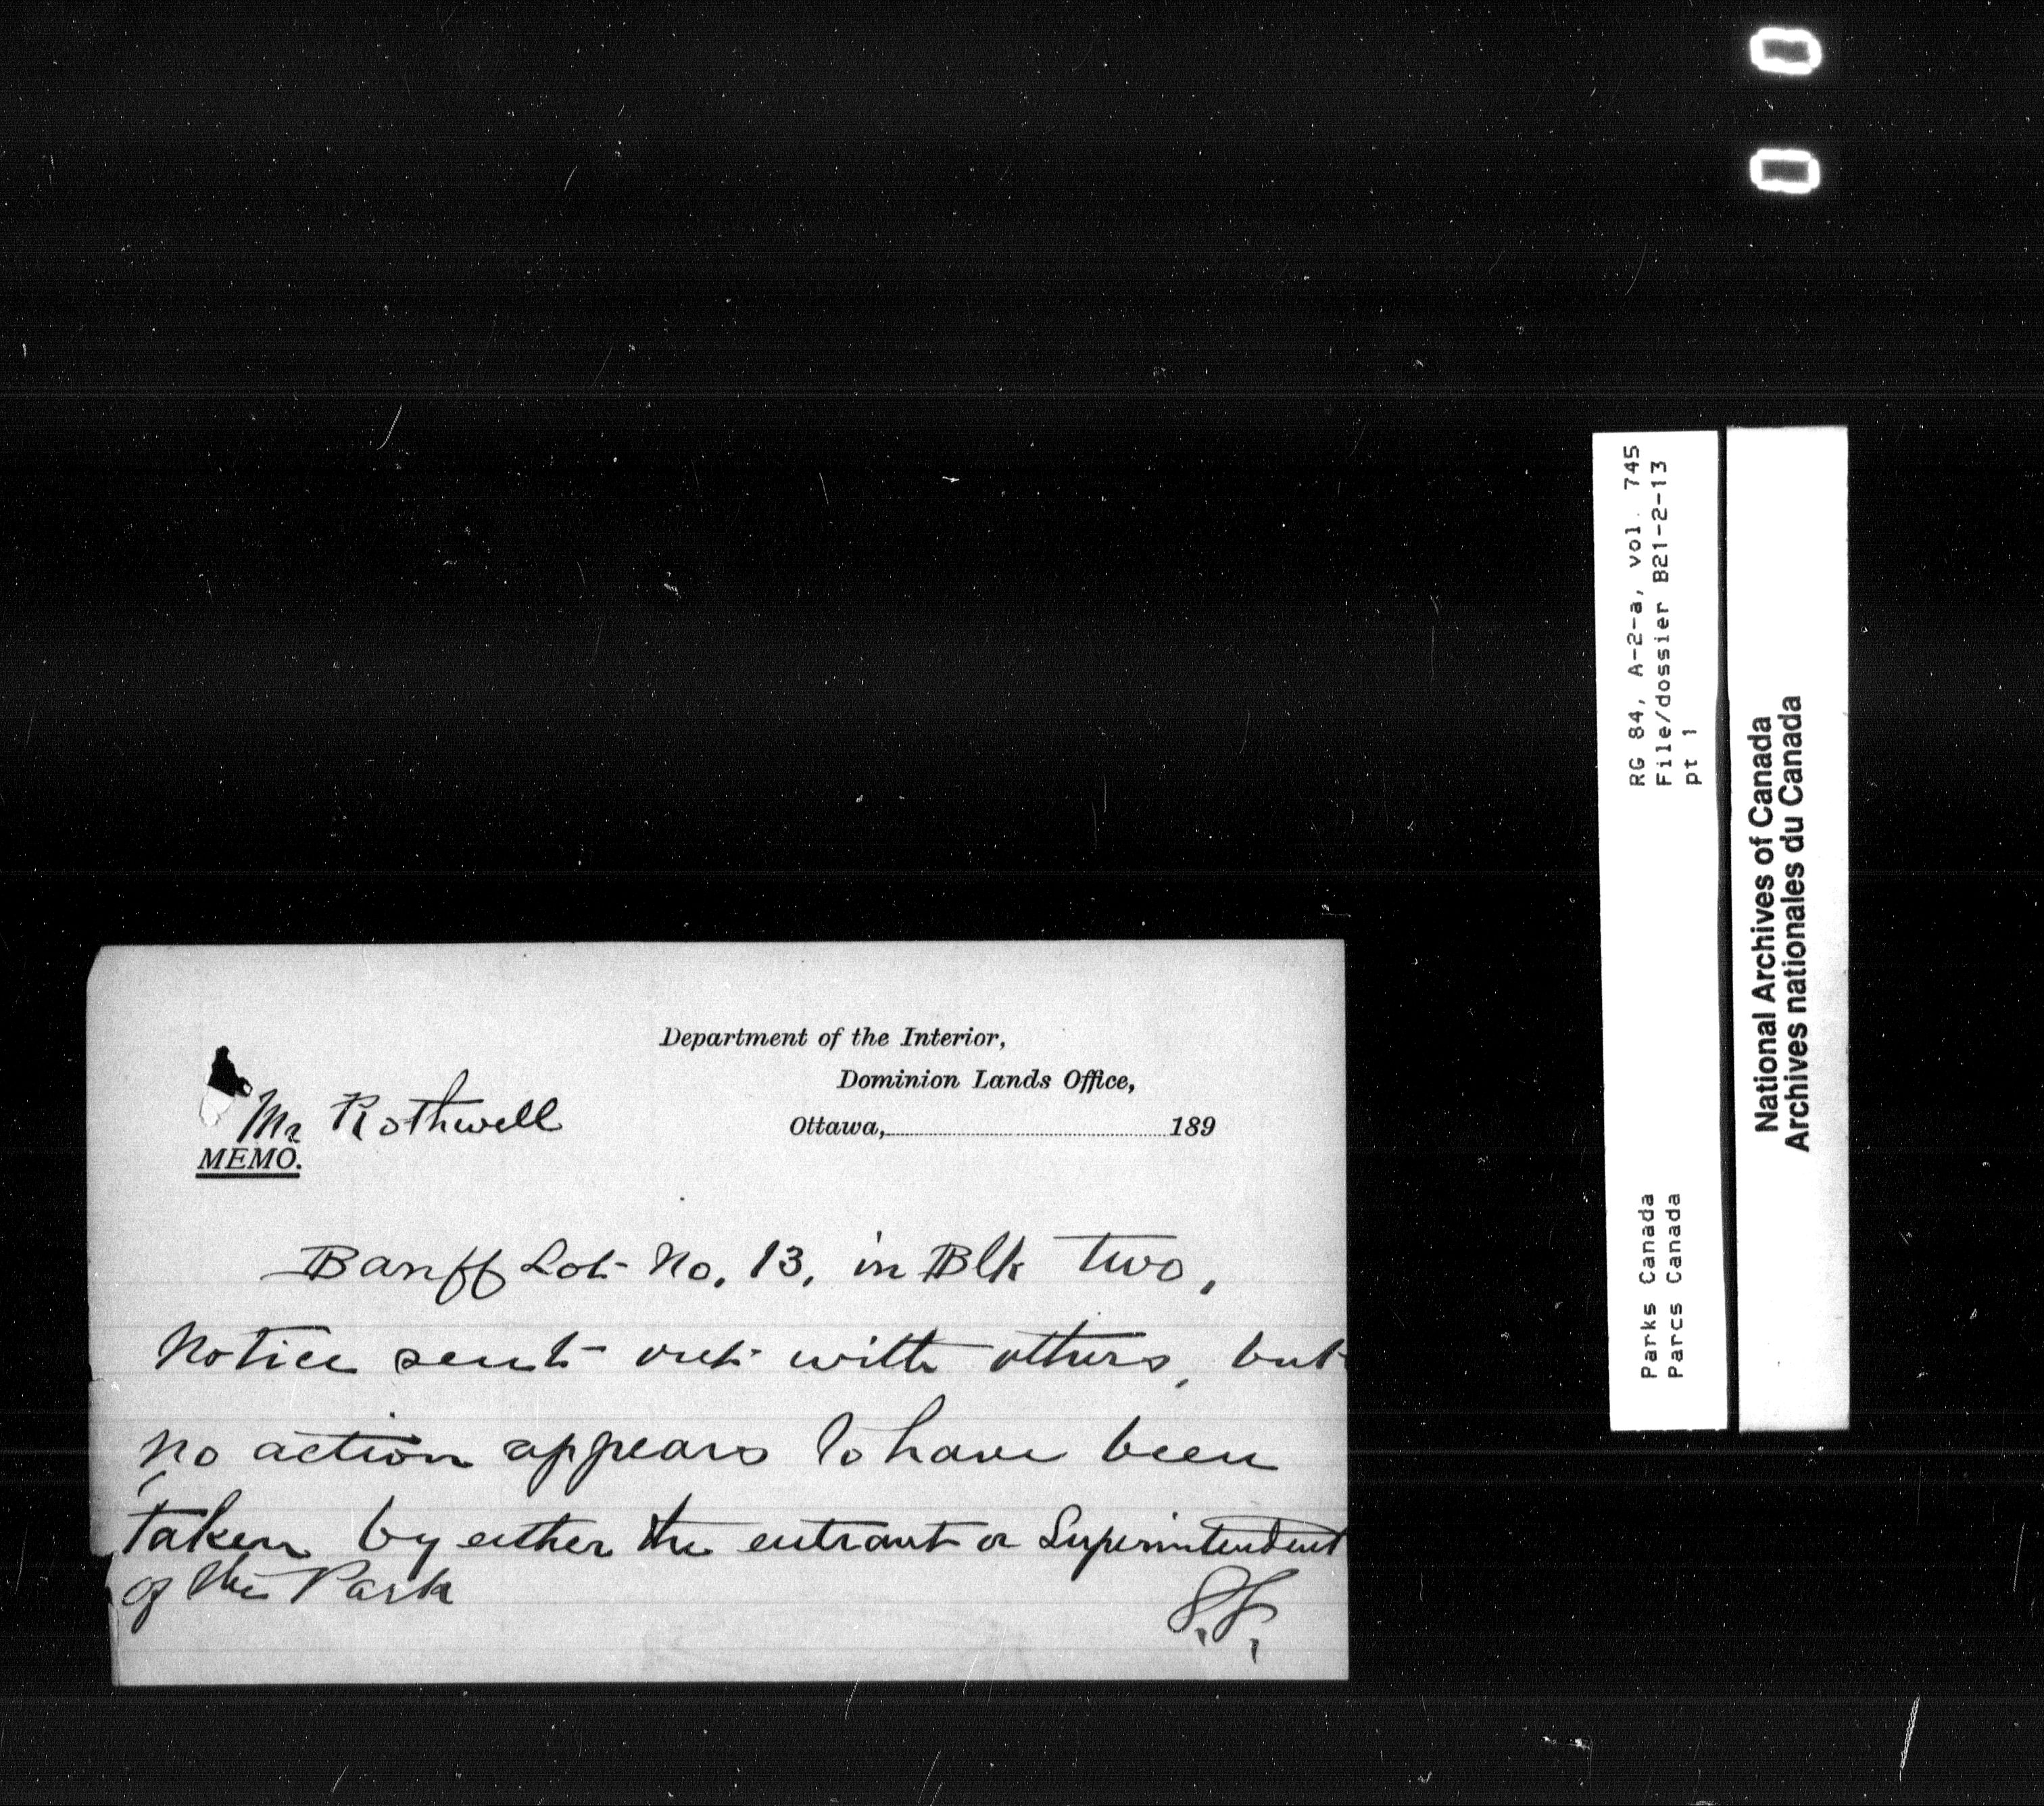 Department of the Interior,
Dominion Lands Office,
Ottawa, 189
Mr Rothwell
MEMO.
Banff Lot No. 13, in Blk two,
Notice sent out with others, but
no action appears to have been
taken by either the entrant or Superintendent
of the Park
RG 84, A-2-a, vol. 745
File/dossier B21-2-13
pt 1
Parks Canada
Parcs Canada
National Archives of Canada
Archives nationales du Canada
0
0